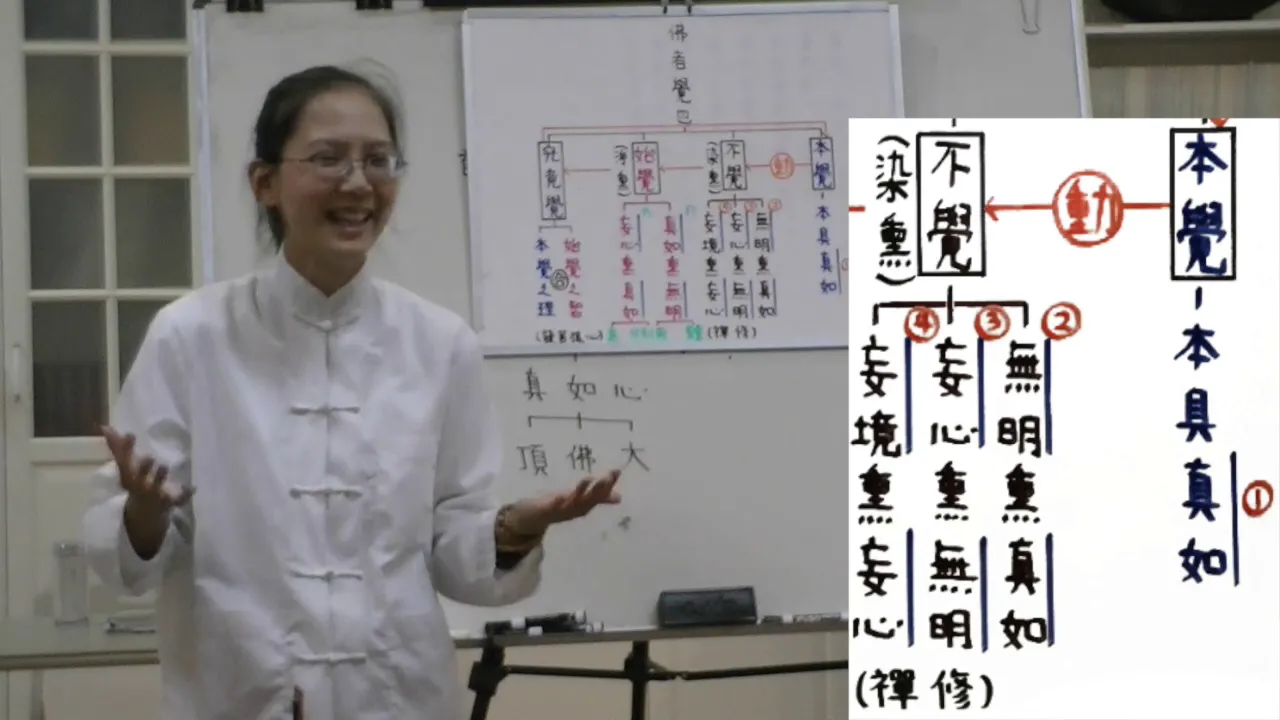 佛者覺已
本覺
動
不覺
(染熏)
始覺
(淨熏)
究竟覺
本具真如
無明熏真如
妄心熏無明
妄境熏妄心
真如熏無明
妄心熏真如
始覺之智
合
本覺之理
(禪修)
真如心
大佛頂
本覺
動
不覺
(染熏)
本具真如
①
②
無明熏真如
③
妄心熏無明
④
妄境熏妄心
(禪修)